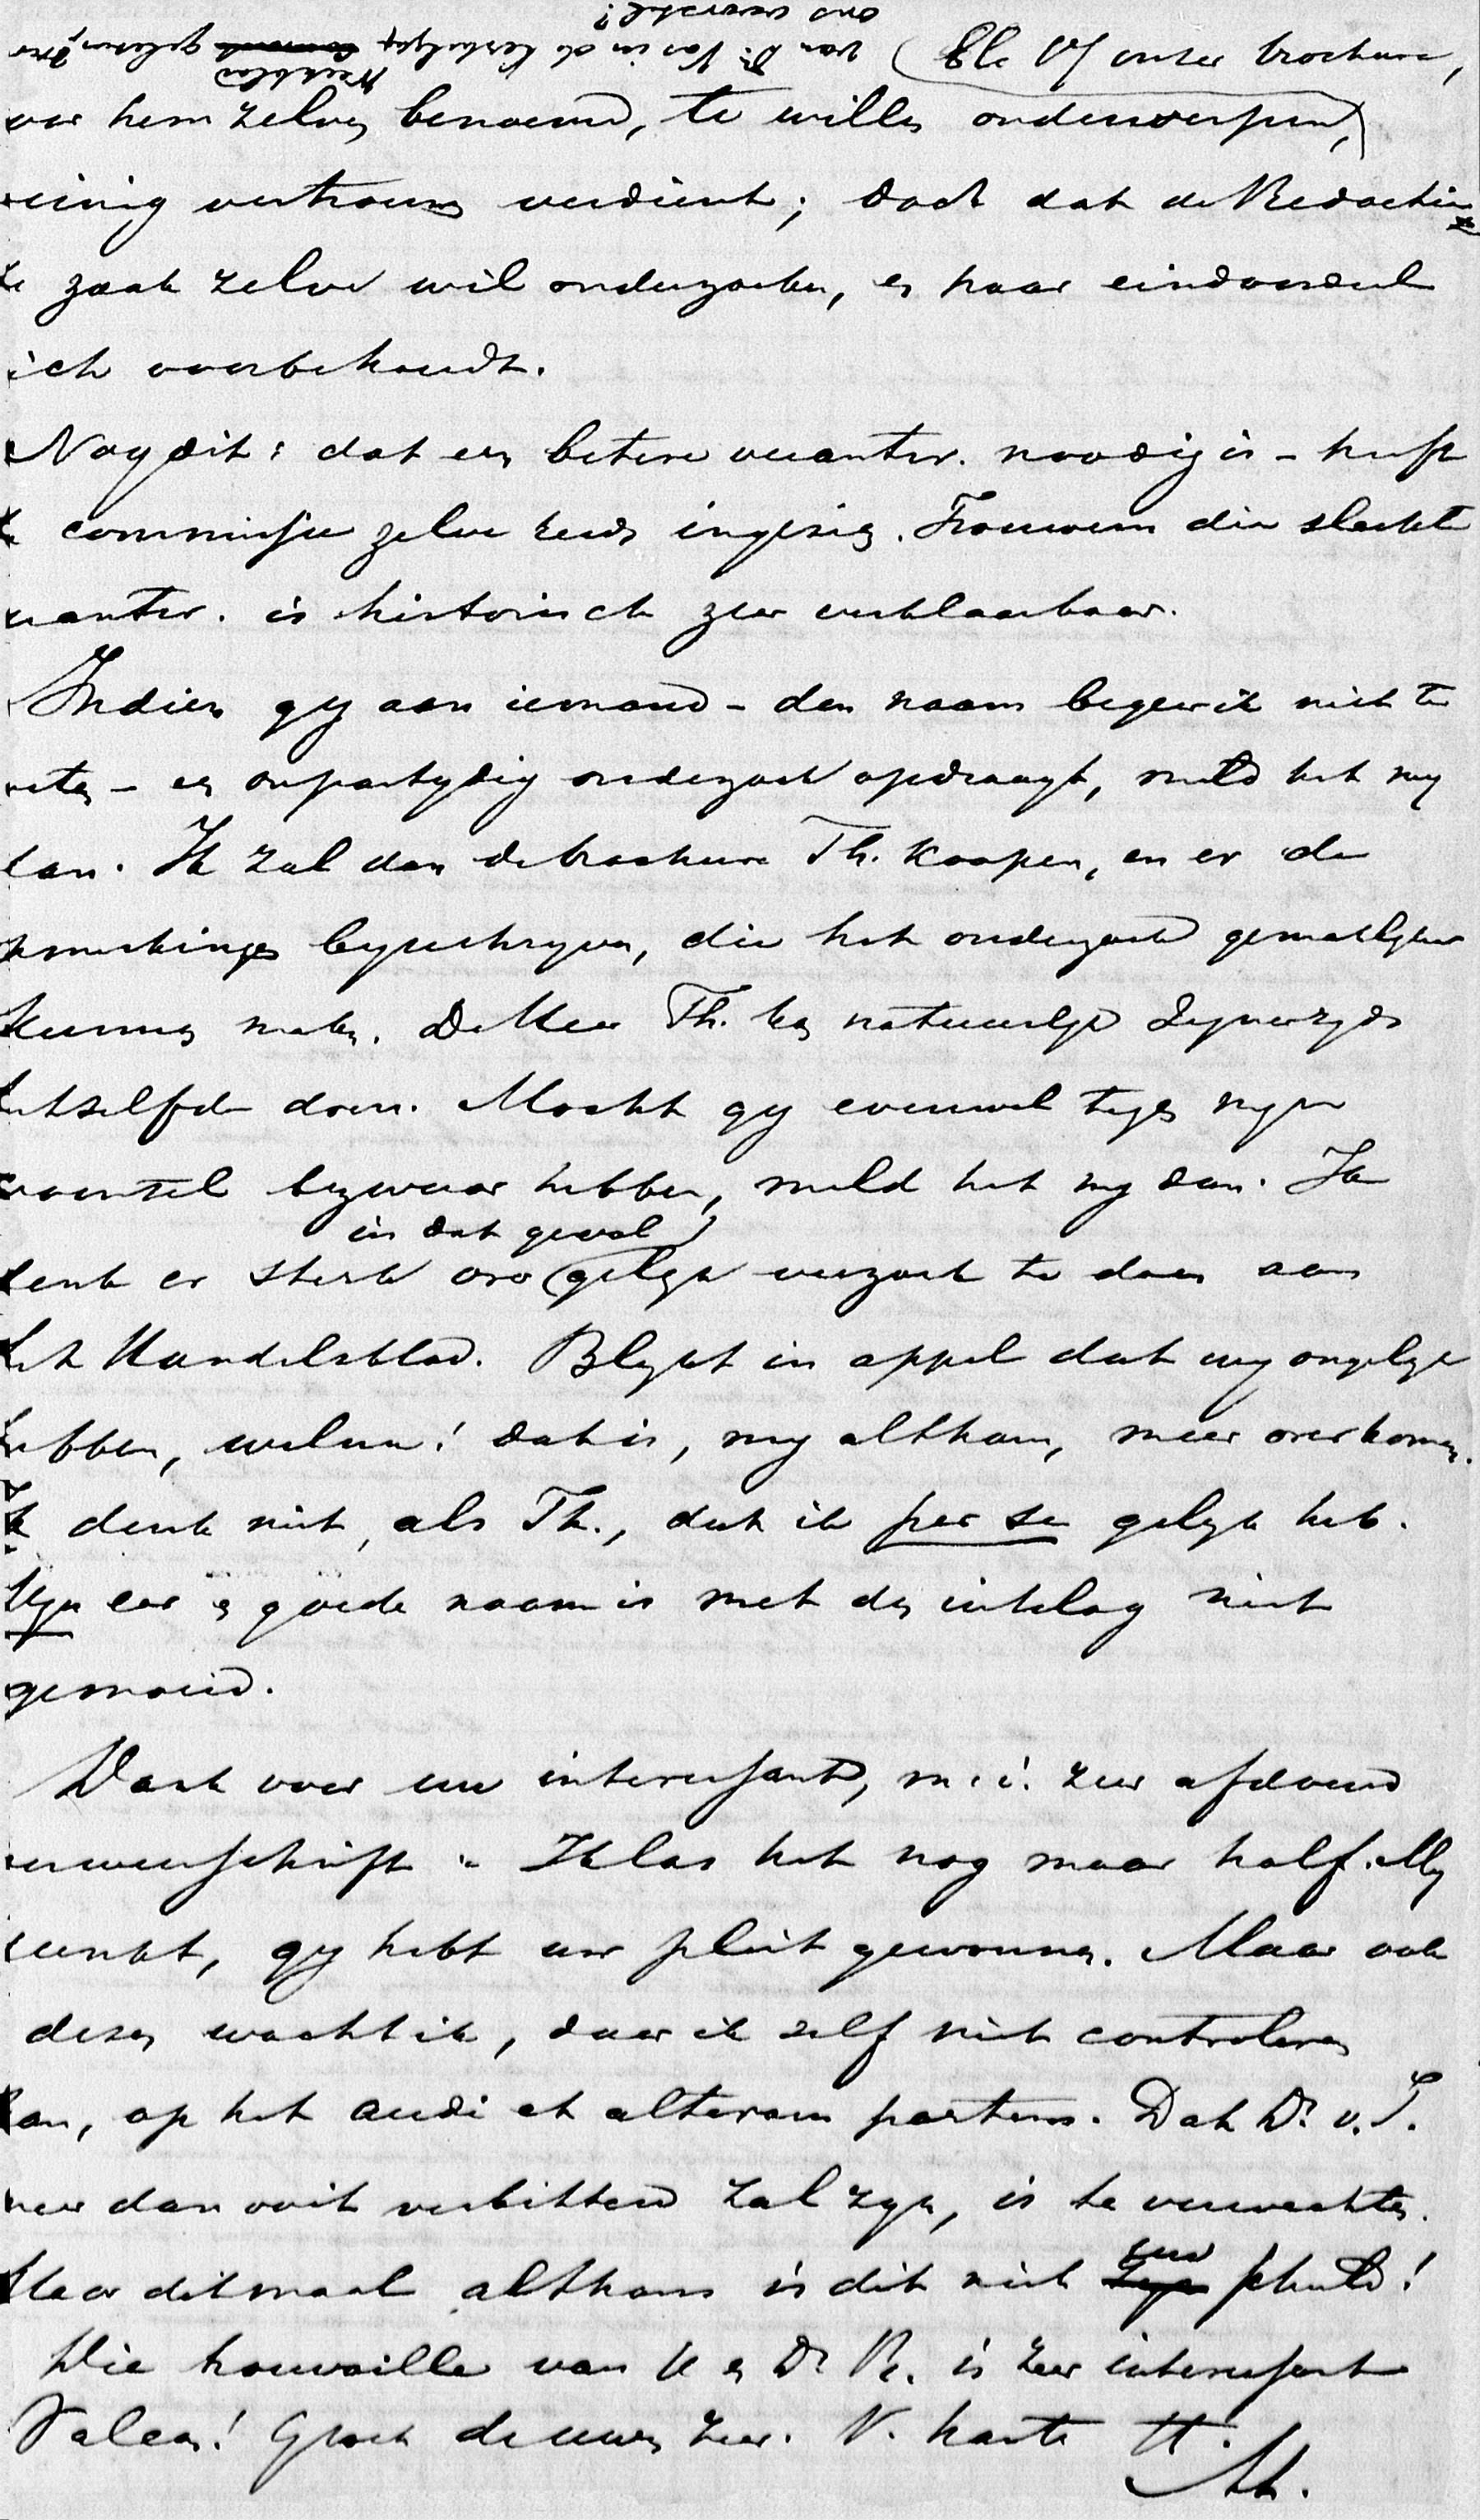 blz. 17 onzer brochure,
door hem zelven benoemd, te willen onderwerpen,)
weinig vertrouwen verdient; doch dat de Redactie
de zaak zelve wil onderzoeken, en haar eindoordeel
zich voorbehoudt.
Nog dit: dat een betere verantw. noodig is – heeft
de commissie zelve reeds ingezien. Trouwens die slechte
verantw. is historisch zeer verklaarbaar.
Indien gy aan iemand – den naam begeer ik niet te
weten – een onpartydig onderzoek opdraagt, meld het my
dan. Ik zal dan de brochure Th. koopen, en er de
opmerkingen byschryven, die het onderzoek gemakkelyker
kunnen maken. De Heer Th. kan natuurlyk zynerzyds
hetzelfde doen. Mocht gy evenwel tegen myn
voorstel bezwaar hebben, meld het my dan. Ik
in dat geval
denk er sterk over gelyk verzoek te doen aan
het Handelsblad. Blykt in appel dat wy ongelyk
hebben, welnu! dat is, my althans, meer overkomen.
Ik denk niet, als Th., dat ik per se gelyk heb.
Myn eer en goede naam is met den uitslag niet
gemoeid.
Dank voor uw interessant, m.i. zeer afdoend
verweerschrift. Ik las het nog maar half. My
dunkt, gy hebt uw pleit gewonnen. Maar ook
dezen wacht ik, daar ik zelf niet controleren
kan, op het audi et alteram partem. Dat Dr. v. T.
meer dan ooit verbitterd zal zyn, is te verwachten.
Maar ditmaal althans is dit niet uw schuld!
Die trouvaille van U en Dr R. is zeer interessant
Valeas! Groet de uwen zeer. V. harte tt.